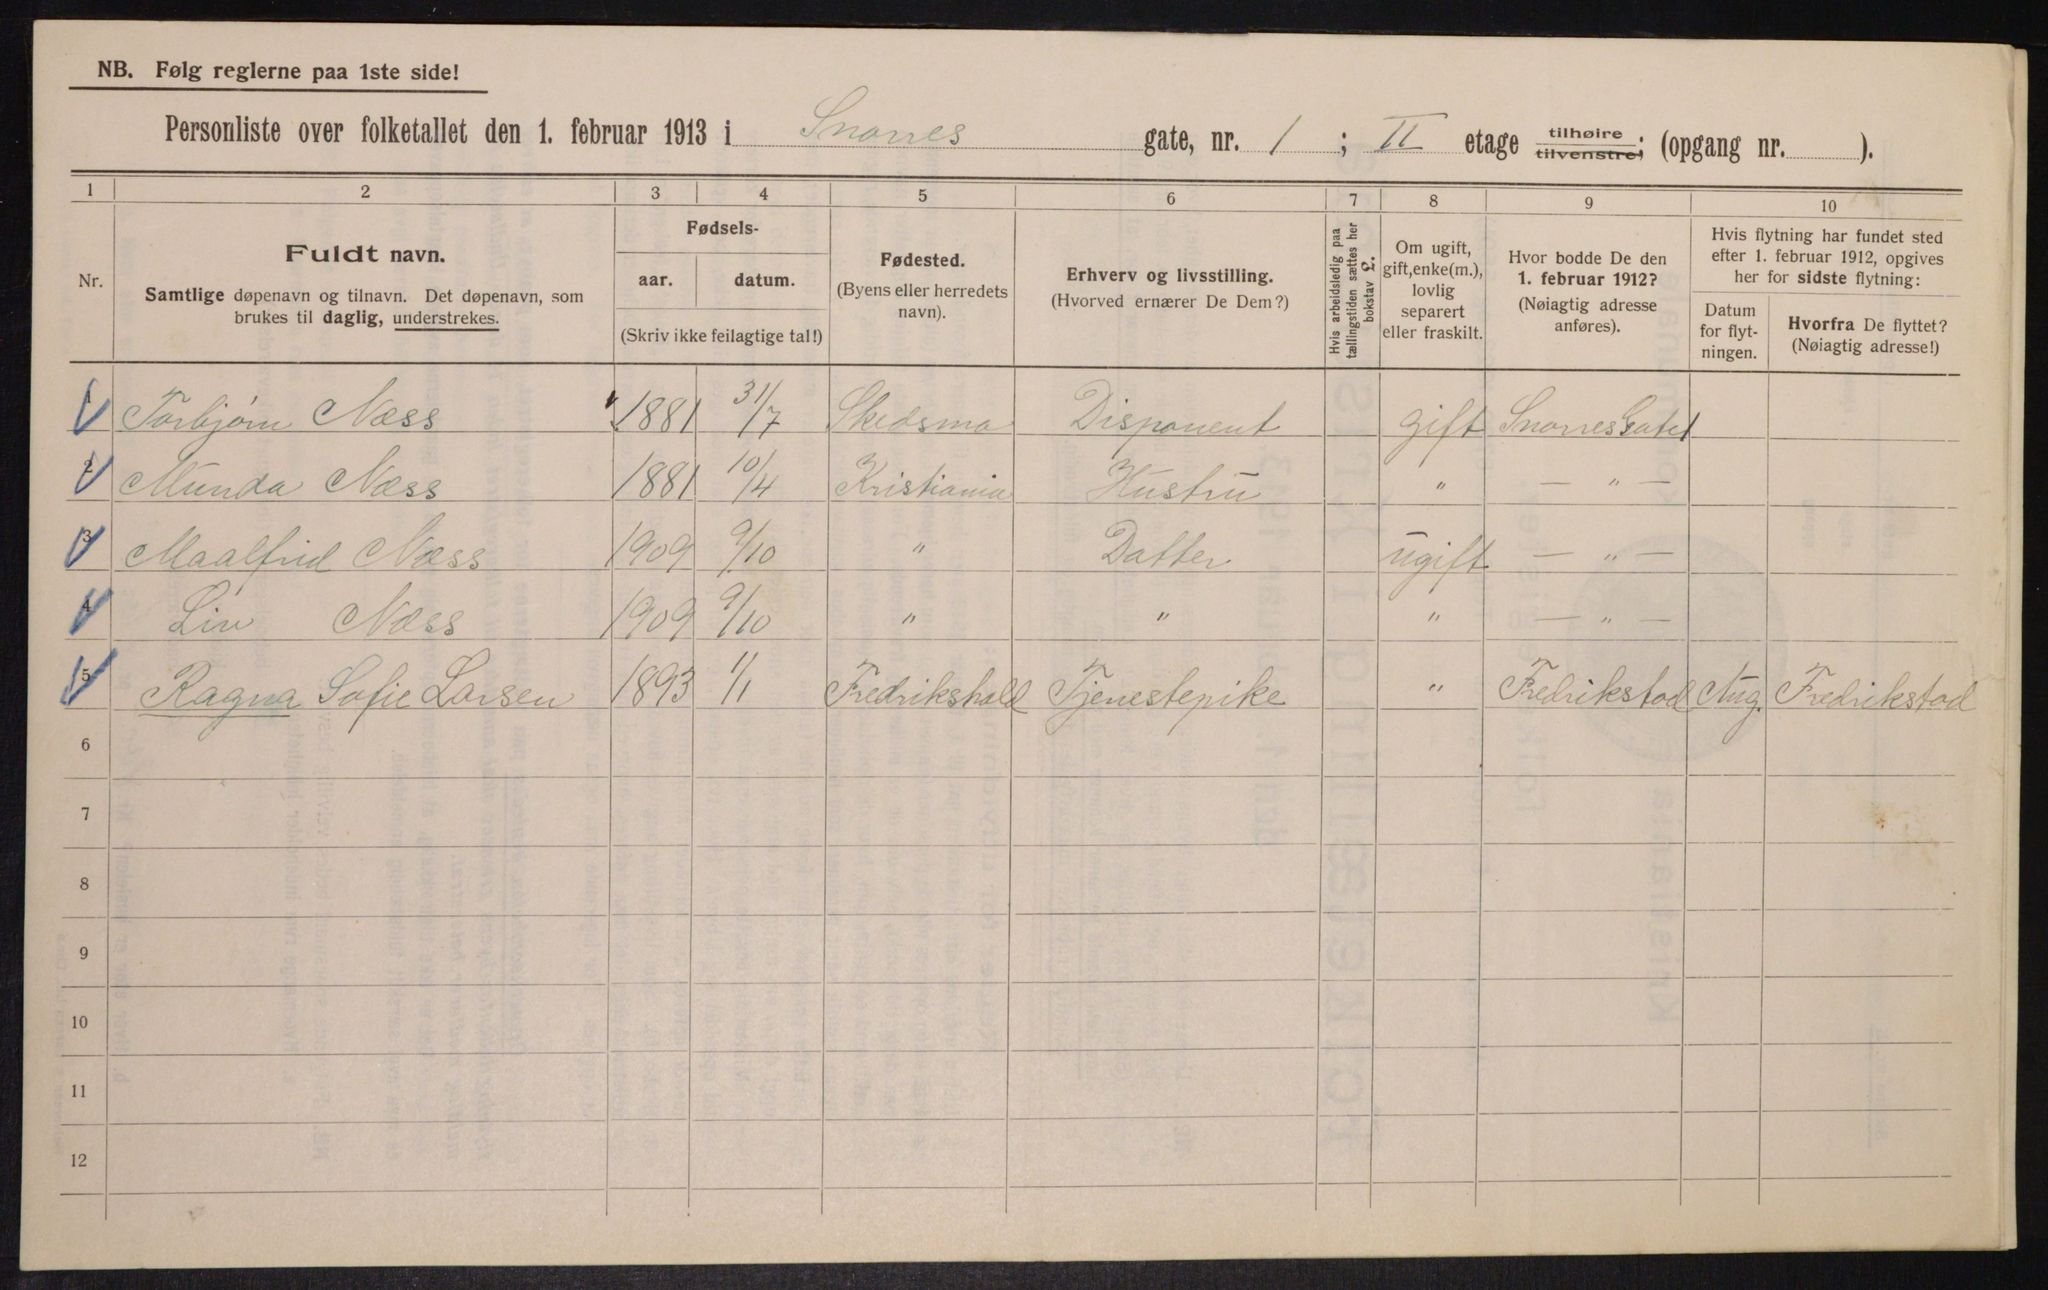 NB. Følg reglerne paa 1ste side!
Personliste over folketallet den 1. februar 1913 i Snorres gate, nr. 1 ; II etage tilhøire tilvenstre; (opgang nr. ).
1 2 3 4 5 6 7 8 9 10
Nr.
Fuldt navn.
Samtlige døpenavn og tilnavn. Det døpenavn, som
brukes til daglig, understrekes.
Fødsels-
aar. datum.
(Skriv ikke feilagtige tal!)
Fødested.
(Byens eller herredets
navn).
Erhverv og livsstilling.
(Hvorved ernærer De Dem?)
Hvis arbeidsledig paa
tællingstiden sættes her
bokstav £.
Om ugift,
gift, enke(m.),
lovlig
separert
eller fraskilt.
Hvor bodde De den
1. februar 1912?
(Nøiagtig adresse
anføres).
Hvis flytning har fundet sted
efter 1. februar 1912, opgives
her for sidste flytning:
Datum
for flyt-
ningen.
Hvorfra De flyttet?
(Nøiagtig adresse!)
1 Torbjørn Næss 1881 31/7 Skedsmo Disponent gift Snorresgate 1
2 Munda Næss 1881 10/4 Kristiania Hustru " — " —
3 Maalfrid Næss 1909 9/10 " Datter ugift — " —
4 Liv Næss 1909 9/10 " " " — " —
5 Ragna Sofie Larsen 1893 1/1 Fredrikshald Tjenestepike " Fredrikstad Aug. Fredrikstad
6
7
8
9
10
11
12